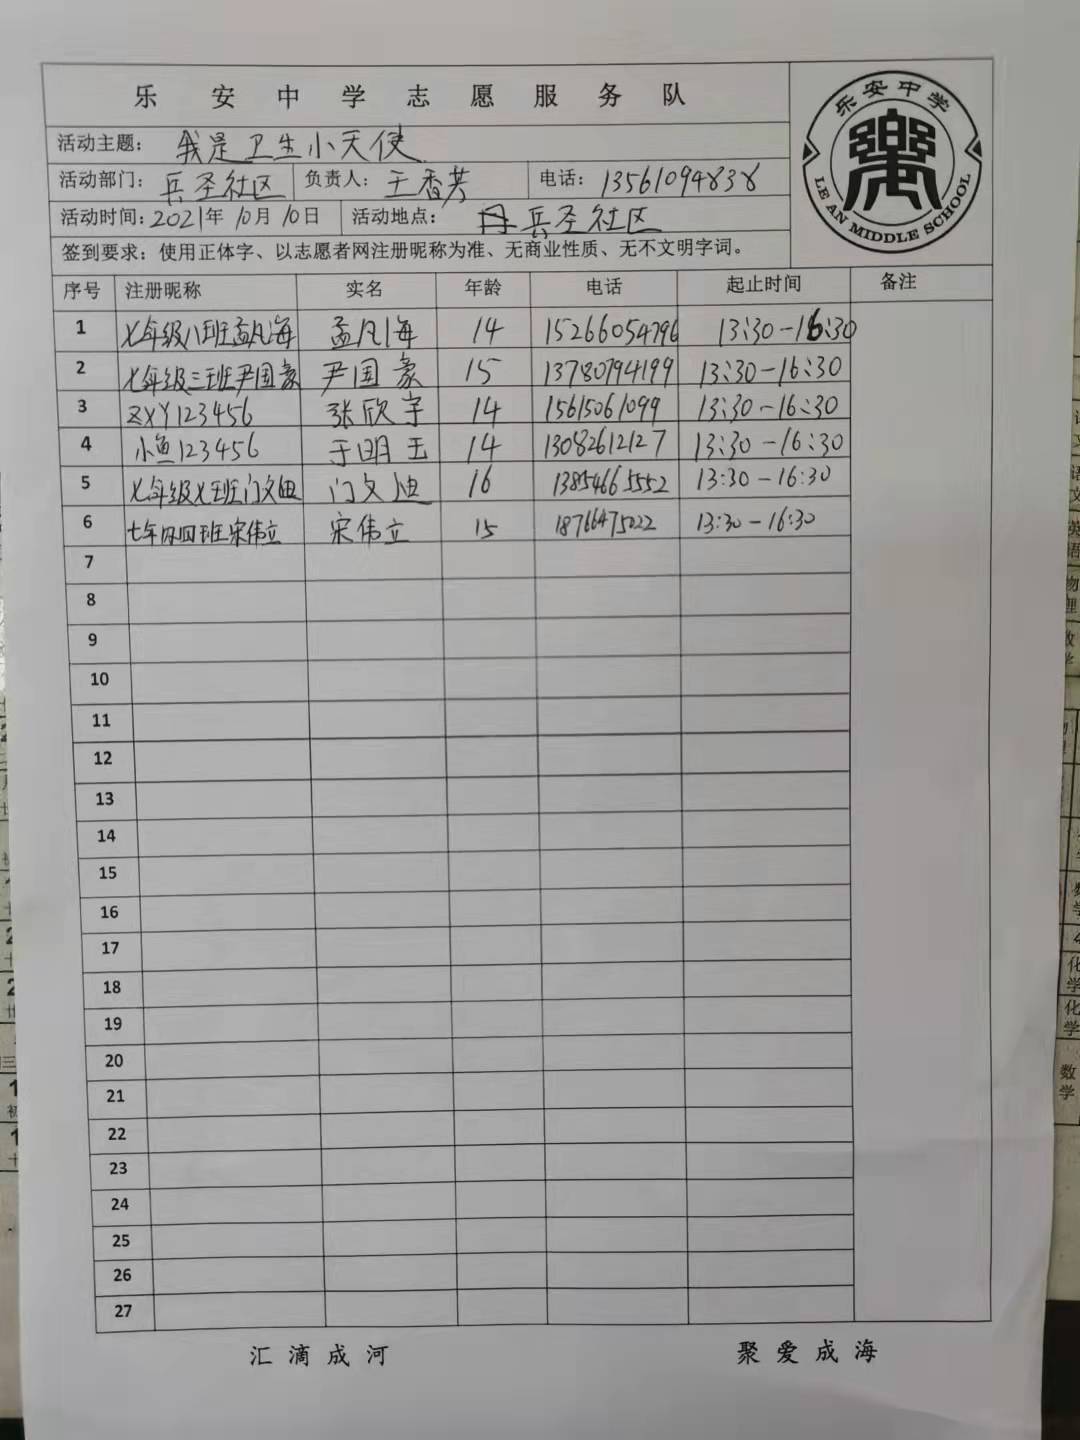 乐安中学志愿服务队
乐安中学
LE AN MIDDLE SCHOOL
活动主题: 我是卫生小天使
活动部门: 兵圣社区 负责人: 王香芳 电话: 13561094838
活动时间: 2021年10月10日 活动地点: 兵圣社区
签到要求: 使用正体字、以志愿者网注册昵称为准、无商业性质、无不文明字词。
序号 注册昵称 实名 年龄 电话 起止时间 备注
1 七年级八班孟凡海 孟凡海 14 15266054796 13:30-16:30
2 七年级三班尹国豪 尹国豪 15 13780794199 13:30-16:30
3 ZXY123456 张欣宇 14 15615061099 13:30-16:30
4 小鱼123456 于明玉 14 13082612127 13:30-16:30
5 七年级七班门文迪 门文迪 16 13854665552 13:30-16:30
6 七年四班宋伟立 宋伟立 15 18766475022 13:30-16:30
7
8
9
10
11
12
13
14
15
16
17
18
19
20
21
22
23
24
25
26
27
汇滴成河 聚爱成海